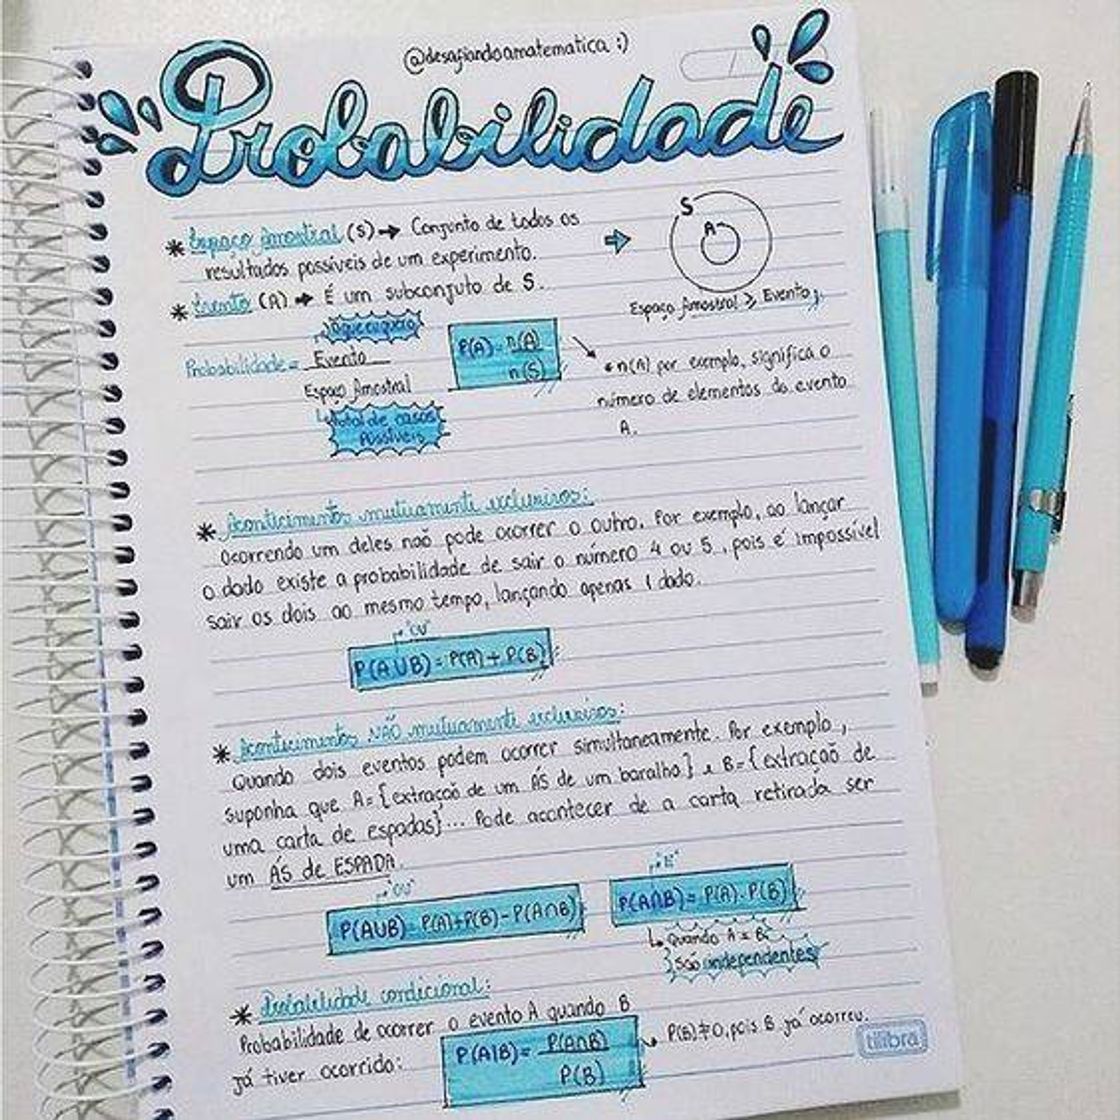 @desafiandoamatematica :)
Probabilidade
* Espaço Amostral (S) → Conjunto de todos os
resultados possíveis de um experimento.
* Evento (A) → É um subconjuto de S.
S
A
Espaço Amostral > Evento
o que eu quero
Probabilidade = Evento
Espaço Amostral
total de casos
possíveis
P(A) = n(A)
n(S)
* n(A) por exemplo, significa o
número de elementos do evento
A.
* Acontecimentos mutuamente exclusivos:
Ocorrendo um deles naõ pode ocorrer o outro. Por exemplo, ao lançar
o dado existe a probabilidade de sair o numero 4 ou 5, pois é impossível
sair os dois ao mesmo tempo, lançando apenas 1 dado.
"OU"
P(A∪B) = P(A) + P(B)
* Acontecimentos NÃO mutuamente exclusivos:
Quando dois eventos podem ocorrer simultaneamente. Por exemplo,
suponha que A = {extraçaõ de um ÁS de um baralho} e B = {extraçaõ de
uma carta de espadas}... Pode acontecer de a carta retirada ser
um ÁS de ESPADA.
"OU"
P(A∪B) = P(A)+P(B) - P(A∩B)
"E"
P(A∩B) = P(A) . P(B)
Quando A e B
são independentes
* Probabilidade condicional:
Probabilidade de ocorrer o evento A quando B
já tiver ocorrido:
P(A|B) = P(A∩B)
P(B)
P(B) ≠ 0, pois B já ocorreu.
tilibra